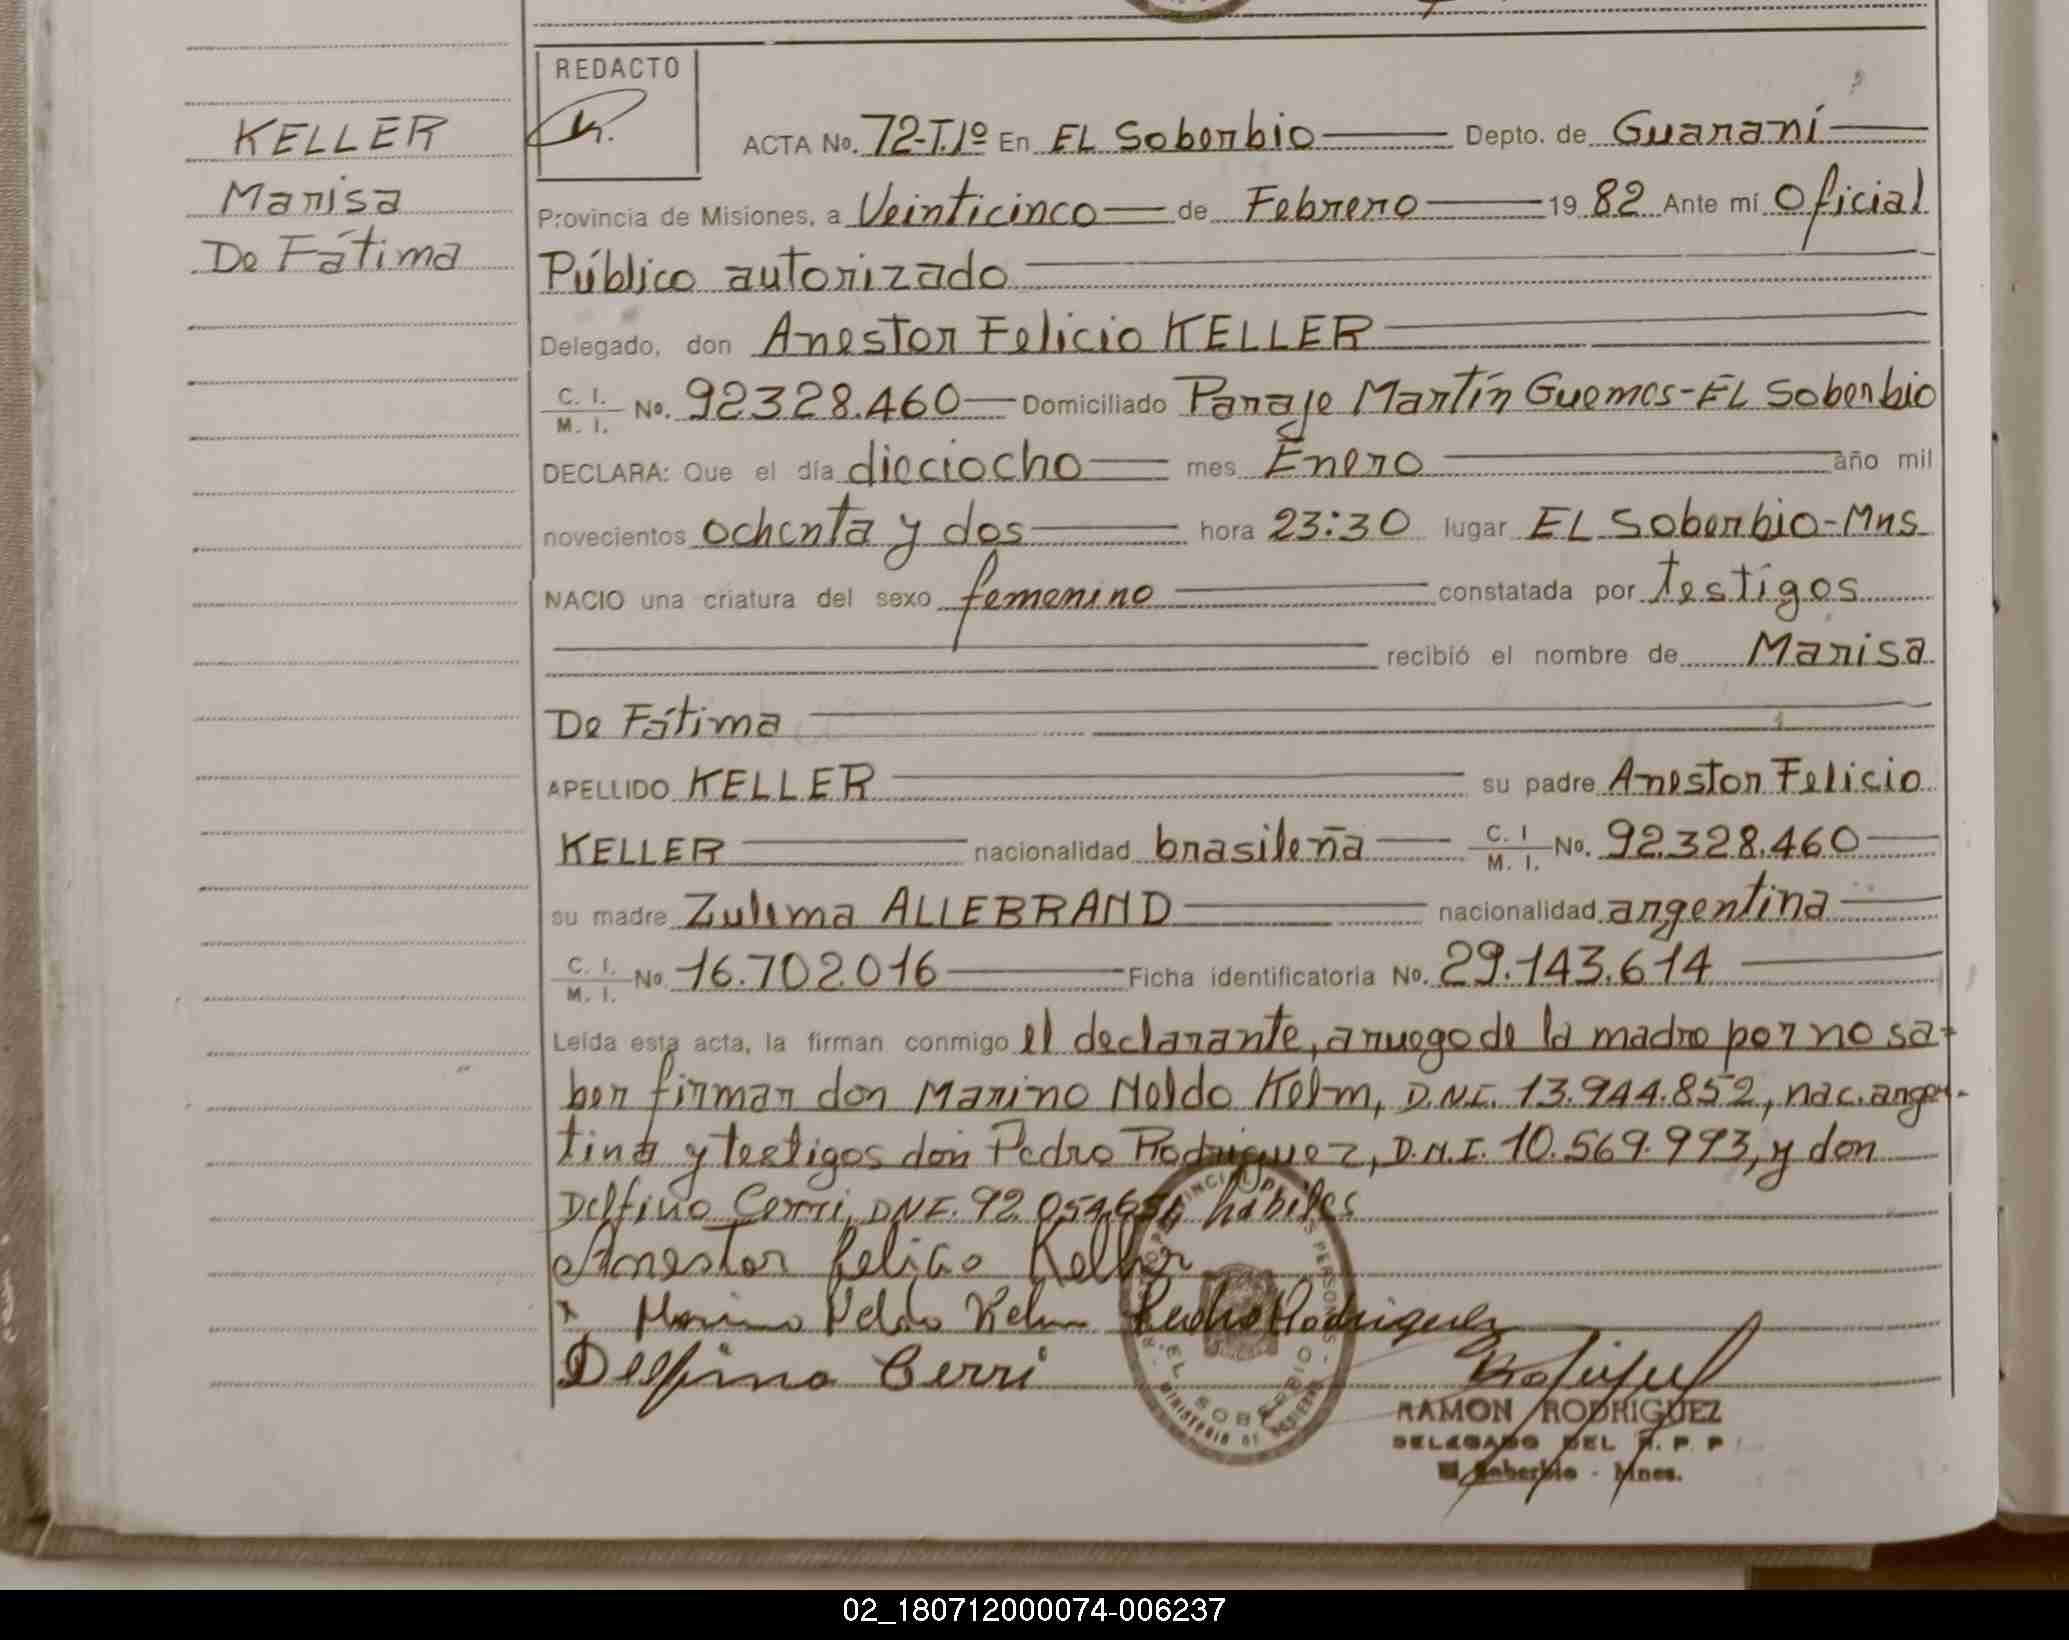 REDACTO
KELLER
Marisa
De Fátima
ACTA No. 72-T.1º En EL Soberbio Depto. de Guaraní
Provincia de Misiones, a Veinticinco de Febrero 1982 Ante mí Oficial
Público autorizado
Delegado, don Anestor Felicio KELLER
C. I. / M. I. No. 92328.460 Domiciliado Paraje Martín Guemes-EL Soberbio
DECLARA: Que el día dieciocho mes Enero año mil
novecientos ochenta y dos hora 23:30 lugar EL Soberbio-Mns.
NACIO una criatura del sexo femenino constatada por testigos
recibió el nombre de Marisa
De Fátima
APELLIDO KELLER su padre Anestor Felicio
KELLER nacionalidad brasileña C. I / M. I. No. 92.328.460
su madre Zulema ALLEBRAND nacionalidad argentina
C. I. / M. I. No. 16.702.016 Ficha identificatoria No. 29.143.614
Leída esta acta, la firman conmigo el declarante, a ruego de la madre por no sa-
ber firmar don Marino Neldo Kelm, D.N.I. 13.944.852, nac. argen-
tina y testigos don Pedro Rodriguez, D.N.I. 10.569.993, y don
Delfino Cerri, DNI. 92.054. hábiles
Anestor Felicio Keller
x Marino Neldo Kelm Pedro Rodriguez
Delfino Cerri
EL SOBERBIO
MINISTERIO DE GOBIERNO
RAMON RODRIGUEZ
DELEGADO DEL R. P. P
El Soberbio - Mnes.
02_180712000074-006237